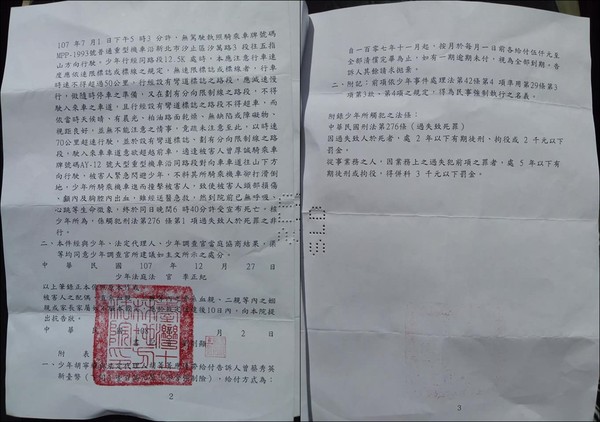 107 年 7 月 1 日下午 5 時 3 分許,無駕駛執照騎乘車牌號碼
MPP-1993號普通重型機車沿新北市汐止區汐萬路 3 段往五指
山方向行駛。少年行經同路段12.5K 處時,本應注意行車速
度應依速限標誌或標線之規定,無速限標誌或標線者,行車
時速不得超過50公里,行經設有彎道標誌之路段,應減速慢
行,做隨時停車之準備,又在劃有分向限制線之路段,不得
駛入來車之車道,且行經設有彎道標誌之路段不得超車,而
依當時天候晴,有晨光,柏油路面乾燥、無缺陷或障礙物,
視距良好,並無不能注意之情事,竟疏未注意至此,以時速
70公里超速行駛,並於設有彎道標誌、劃有分向限制線之路
段,駛入來車車道意欲超越前車,適逢被害人曾厚誠騎乘車
牌號碼AY-12 號大型重型機車沿同路段對向車道往山下方
向行駛,被害人緊急閃避少年,不料其所騎乘機車卻打滑倒
地,少年所騎乘機車進而撞擊被害人,致使被害人頭部損傷
、顱內及胸腔內出血,雖經送醫急救,然到院前已無呼吸、
心跳等生命徵象,終於同日晚間6 時40分許宣布死亡。核
少年所為,係觸犯刑法第276 條第1 項過失致人於死罪之非
行。
二、本件經與少年、法定代理人、少年調查官當庭協商結果,渠
等均同意少年調查官所建議如主文所示之處分。
中 華 民 國 107 年 12 月 27 日
少年法庭法 官 李正紀
以上筆錄正本係照原本作成。
提出抗告狀。
中 華 民
月 2 日
附 表
新臺幣
給付方式為:
2
自一百零七年十一月起,按月於每月一日前各給付伍仟元至
全部清償完畢為止,如有一期逾期未付,視為全部到期,告
訴人其餘請求拋棄。
二、附記:前項依少年事件處理法第42條第4 項準用第29條第3
項第3 款、第4項之規定,得為民事強制執行之名義。
附錄少年所觸犯之法條:
中華民國刑法第276條(過失致死罪)
因過失致人於死者,處 2 年以下有期徒刑、拘役或 2 千元以下
罰金。
從事業務之人,因業務上之過失犯前項之罪者,處 5 年以下有
期徒刑或拘役,得併科 3 千元以下罰金。
3